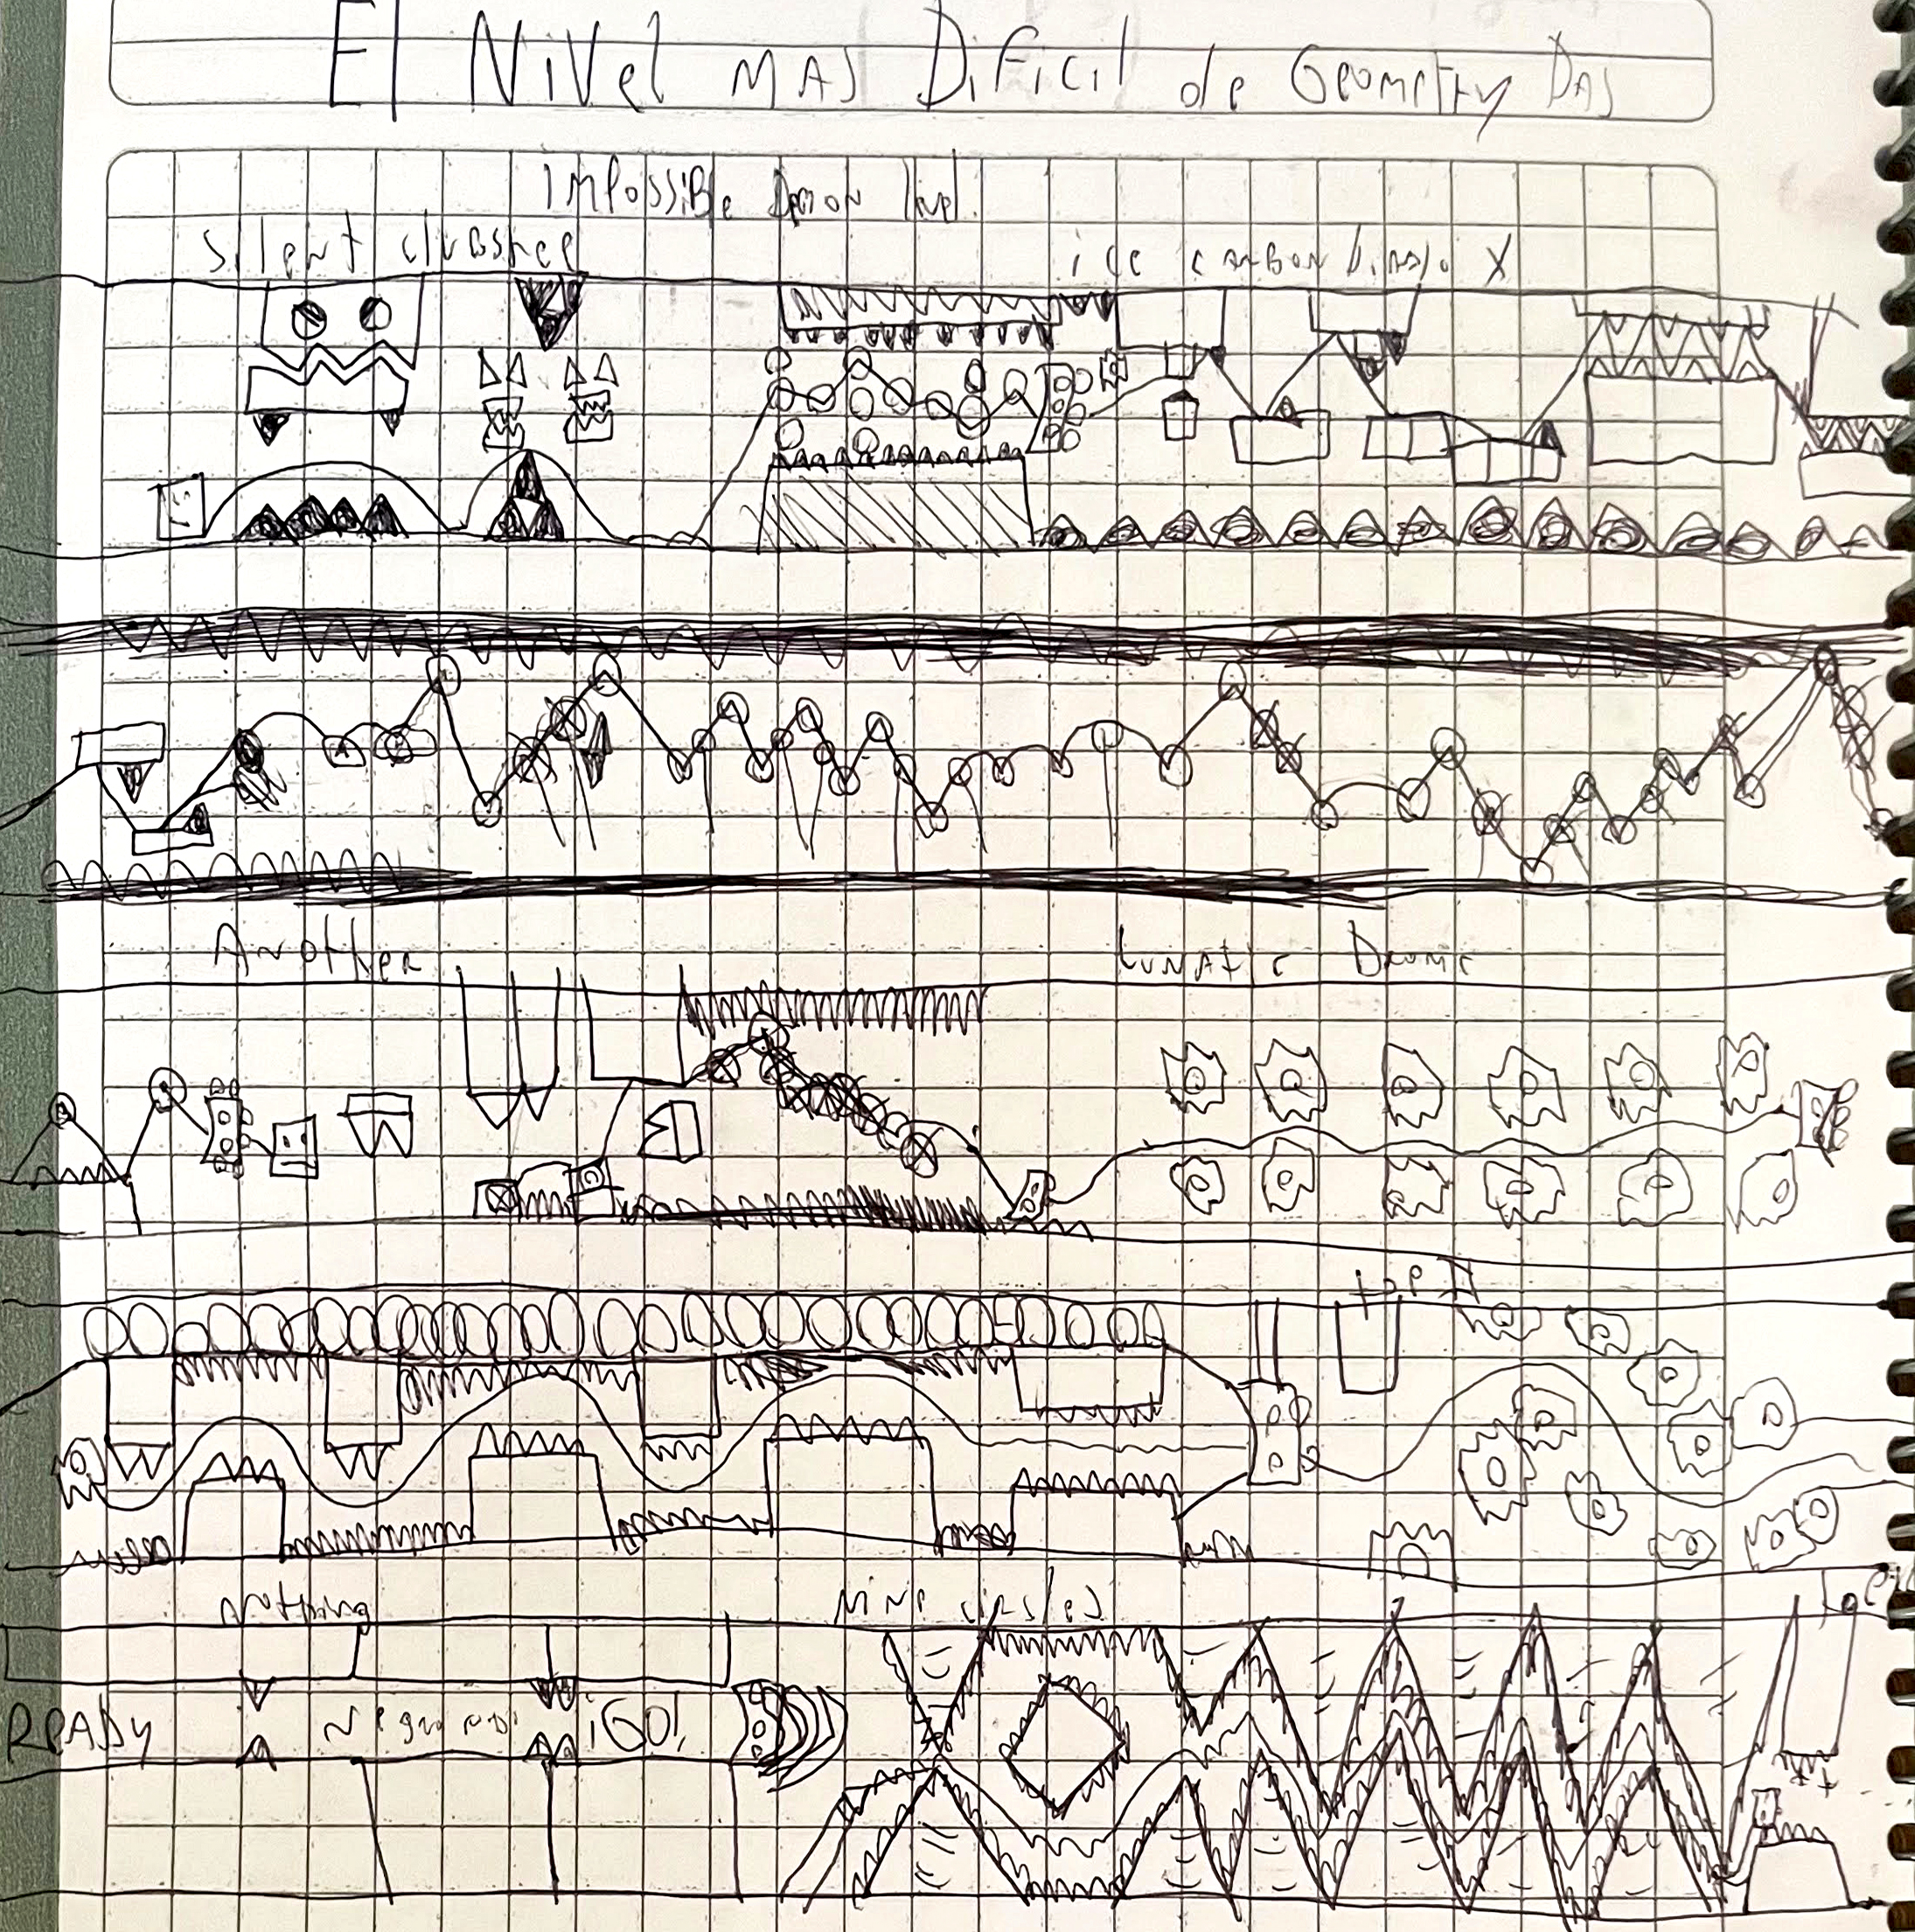 El Nivel MAS Dificil de Geometry DAS
IMPOSSiBle Demon lvel.
silent cluosnce
ice carbon diablo X
Another
Lunatic
top II
nothing
Nine circles
READY
¡GO!